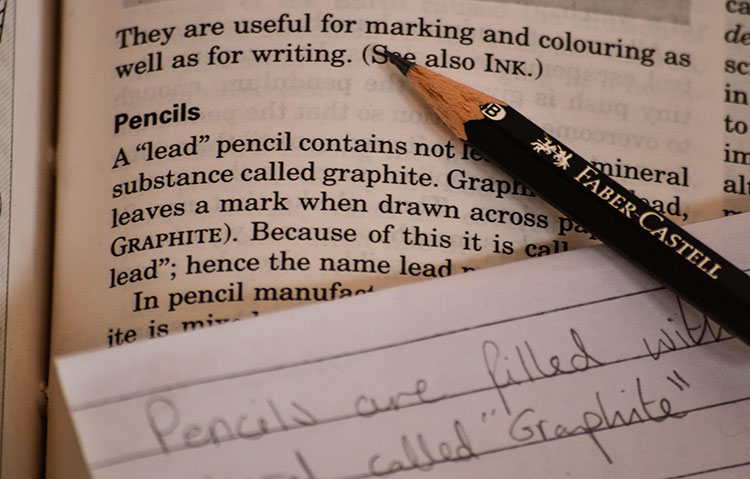 They are useful for marking and colouring as
well as for writing. (See also INK.)
Pencils
A "lead" pencil contains not mineral
substance called graphite. Graph
leaves a mark when drawn across
GRAPHITE). Because of this it is
lead"; hence the name lead
In pencil
ite is
de
in
to
B
FABER-CASTELL
Pencils are filled with
called "Graphite"